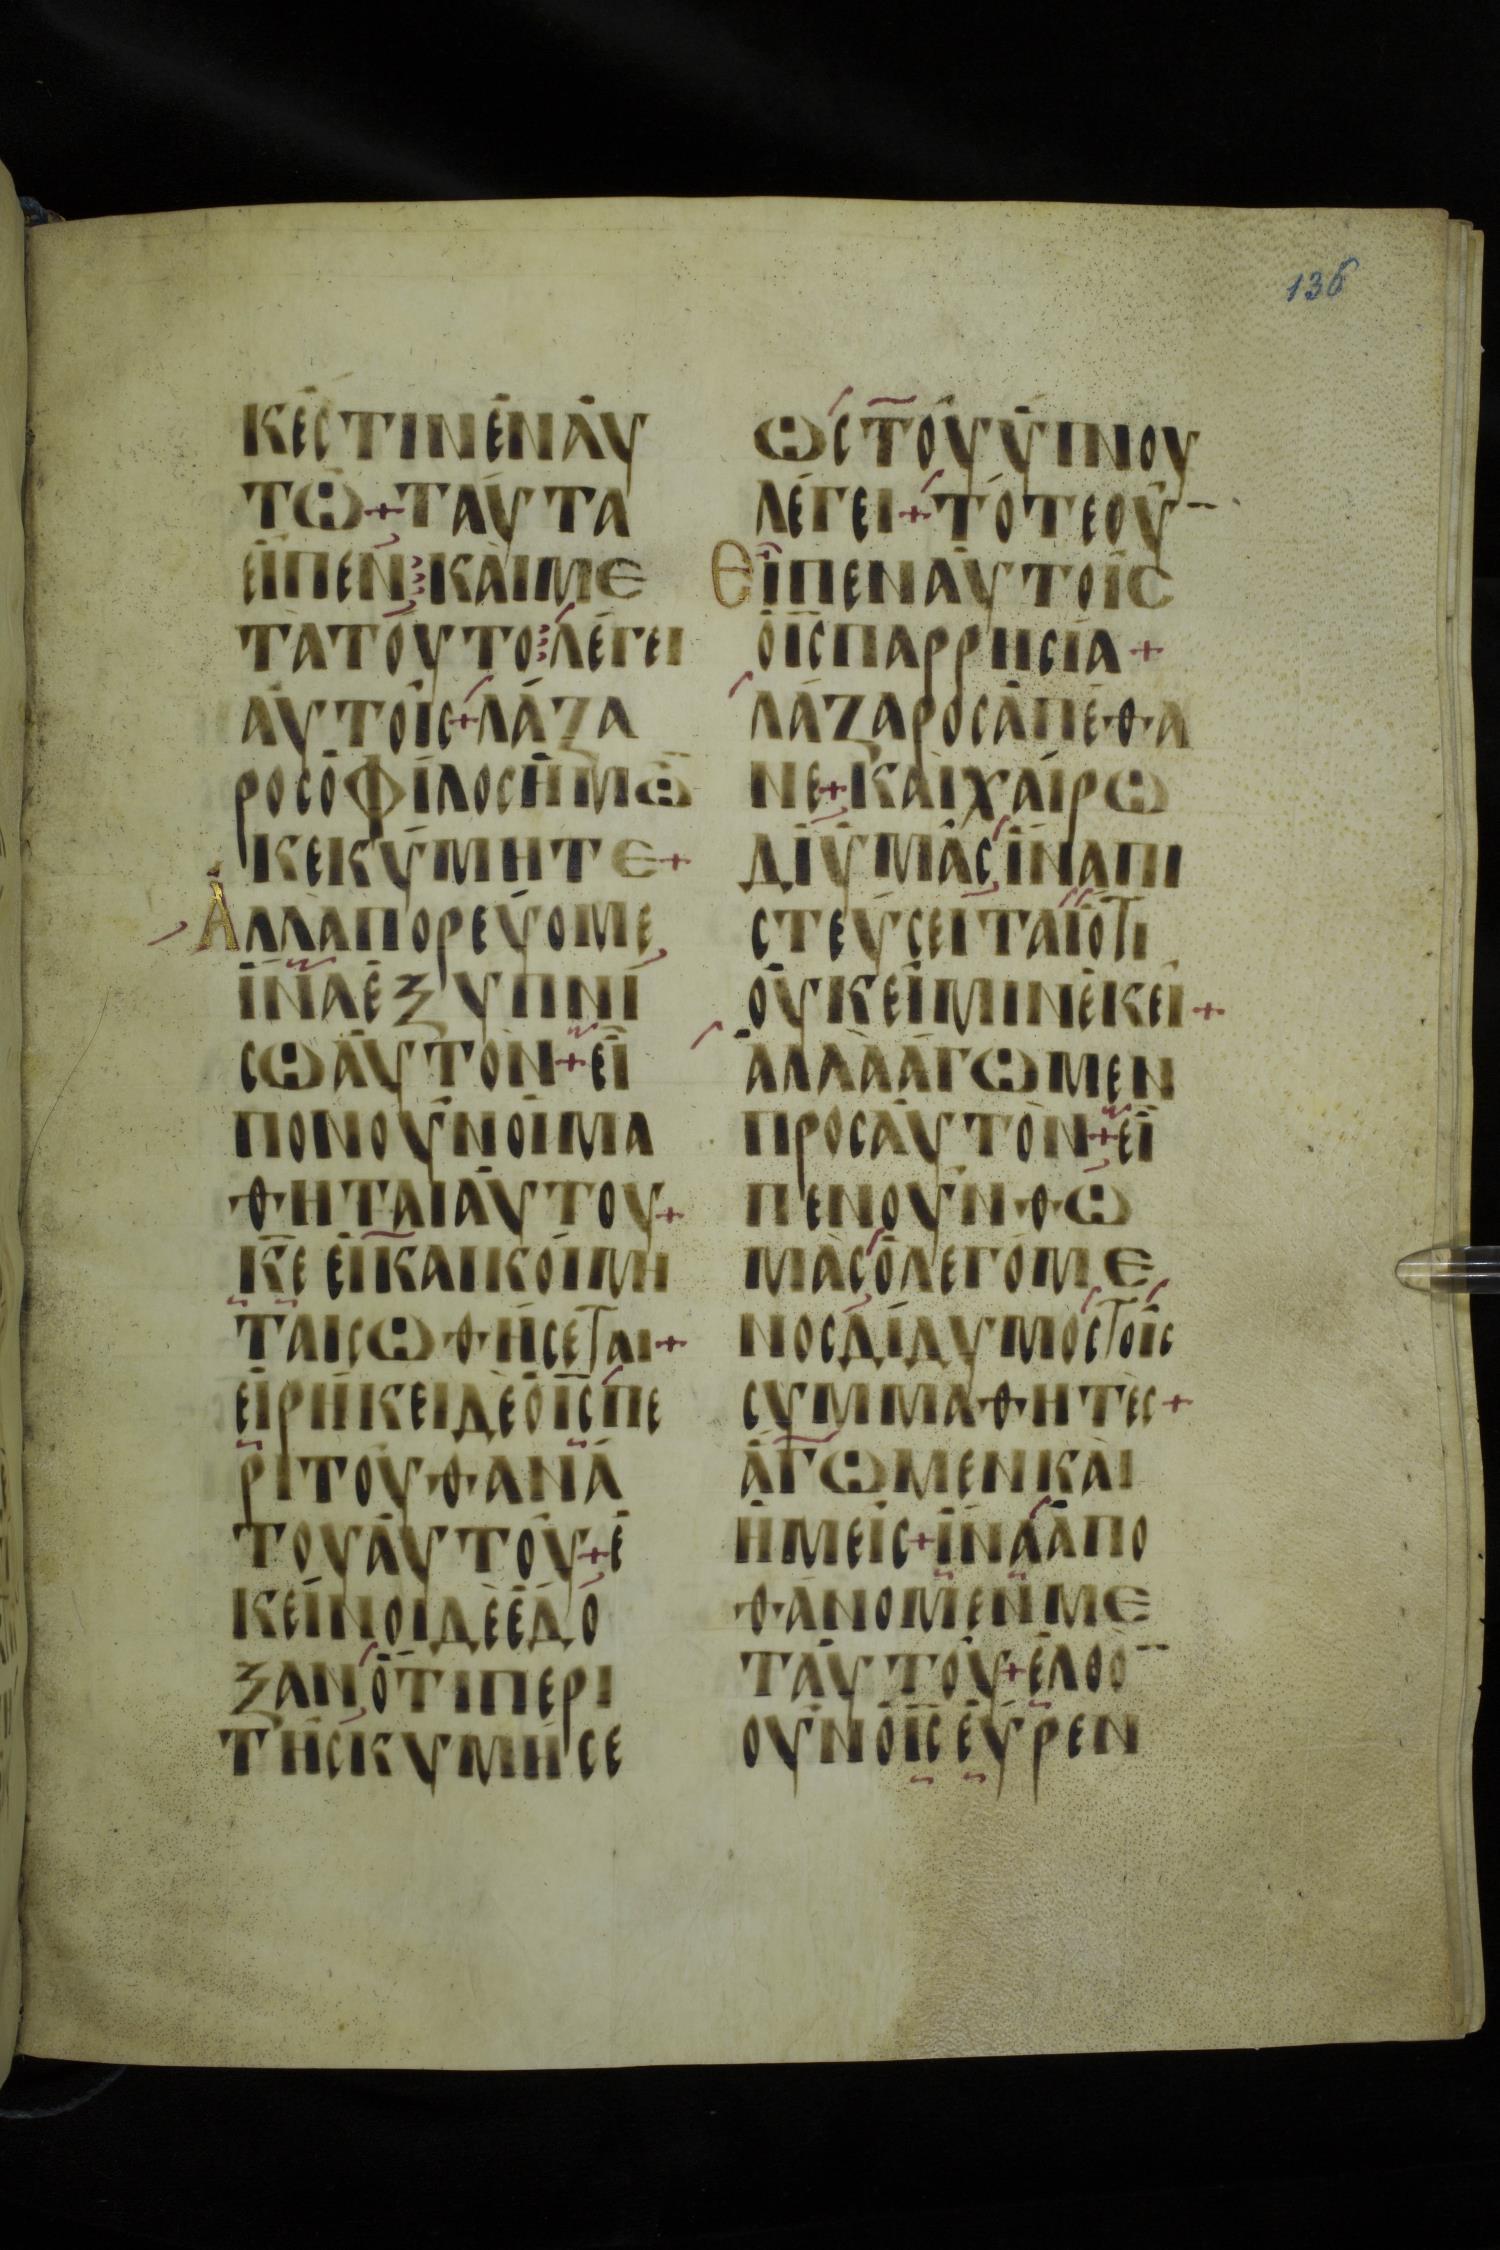 136
ΚΈΣΤΙΝἘΝΑΥ
ΤΩ+ΤΑΥΤΑ
ΕἾΠΕΝ⁝ΚΑῚΜΕ
ΤΑΤΟΥΤΟ⁝ΛΈΓΕΙ
ΑΥΤΟΙΣ+ΛΆΖΑ
ΡΟΣὉΦΊΛΟΣἩΜΩ̅
ΚΕΚΥΜΗΤΕ+
ἈΛΛΑΠΟΡΕΥΟΜΕ
ἽΝΑἘΞΥΠΝΊ
ΣΩΑΥΤΟΝ+ΕἾ
ΠΟΝΟΥΝΟΙΜΑ
ΘΗΤΑΙΑΥΤΟΥ+
Κ̅Ε̅ΕἸΚΑΙΚΟΙΜΗ
ΤΑΙΣΩΘΉΣΕΤΑΙ+
ΕἸΡΉΚΕΙΔΈΟΙ̅Σ̅ΠΕ
ΡΙΤΟΥΘΑΝΆ
ΤΟΥΑΥΤΟΥ+Ἐ
ΚΕΙΝΟΙΔΈἘΔΟ
ΞΑΝὍΤΙΠΕΡΙ
ΤΗΣΚΥΜΉΣΕ
ΩΣΤΟΥΥΠΝΟΥ
ΛΈΓΕΙ+ΤΌΤΕΟΥ̅
ΕἾΠΕΝΑΥΤΟΙΣ
ὉΙ̅Σ̅ΠΑΡΡΗΣΊΑ+
ΛΆΖΑΡΟΣἈΠΈΘΑ
ΝΕ+ΚΑῚΧΑΊΡΩ
ΔΙΥΜΑΣἽΝΑΠΙ
ΣΤΕΥΣΕΙΤΑΙΟΤΙ
ΟΥΚΕἸΜΙΝἘΚΕΙ+
ἈΛΛΆἌΓΩΜΕΝ
ΠΡΟΣΑΥΤΟΝ+ΕἾ
ΠΕΝΟΥΝΘΩ
ΜΑΣὉΛΕΓΌΜΕ
ΝΟΣΔΊΔΥΜΟΣΤΟΙΣ
ΣΥΜΜΑΘΗΤΕΣ+
ἌΓΩΜΕΝΚΑῚ
ἩΜΕΙΣ+ἽΝΑἈΠΟ
ΘΆΝΟΜΕΝΜΕ
ΤΑΥΤΟΥ+ἘΛΘΟ̅
ΟΥΝΟΙ̅Σ̅ΕΥΡΕΝ